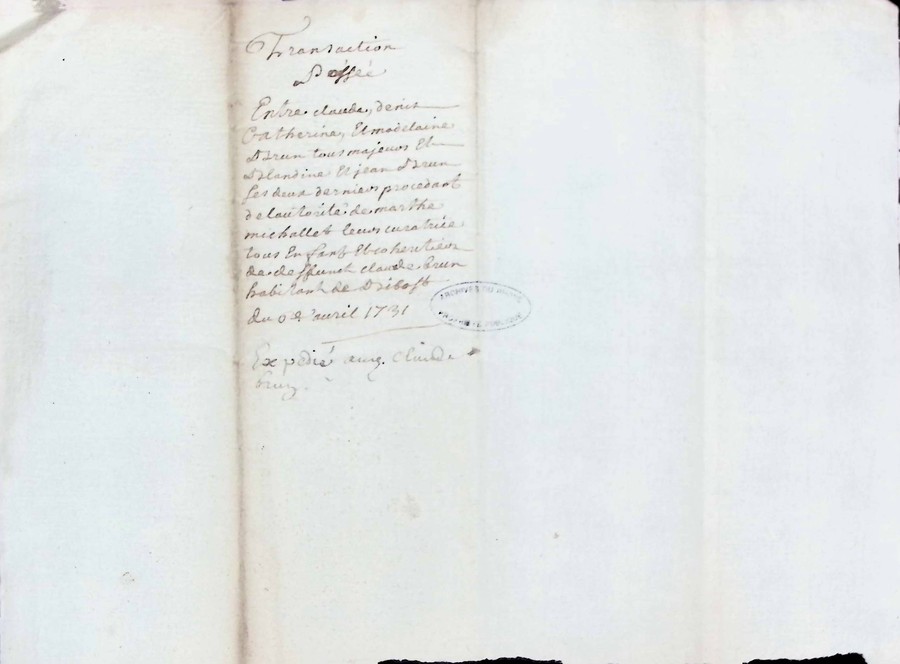 Transaction
Passée
Entre claude, denis
Catherine, Et madelaine
Brun tous majeurs Et
Blandine Et jean Brun
Les deux derniers procedant
de lautorité de marthe
michallet leurs curatrice
tous Enfans Et coheritiers
de deffunct claude brun
habitant de Bribost
du 9e avril 1731
Expédié aud. Claude
brun
ARCHIVES DU RHONE